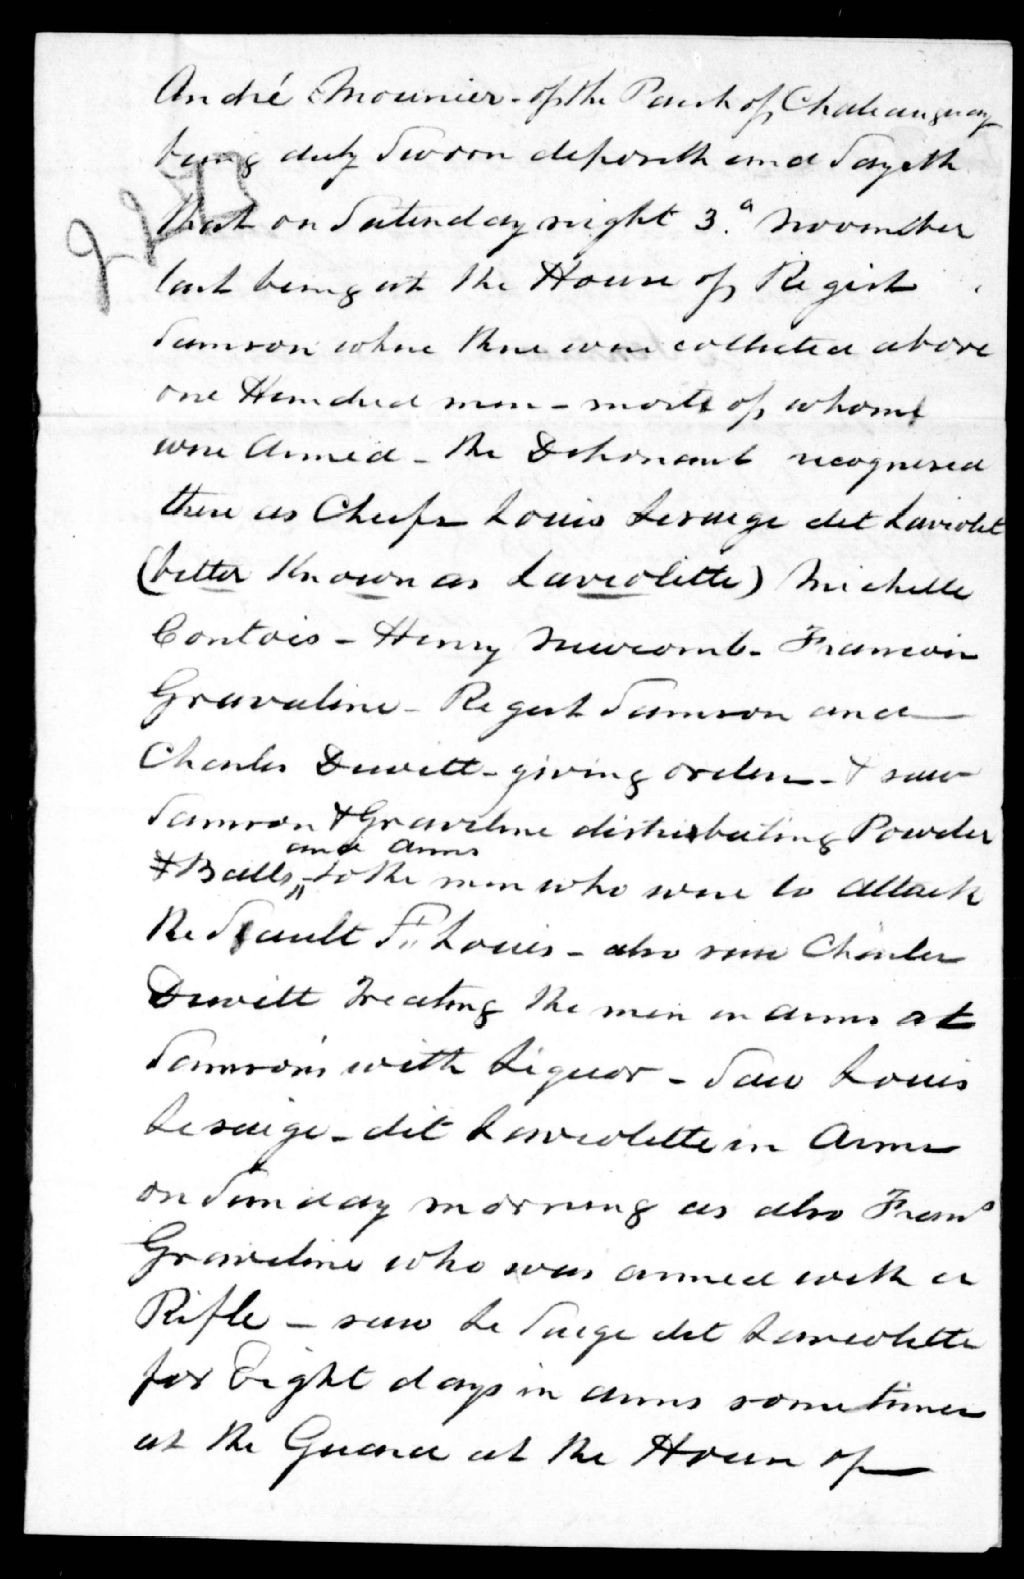 André Mounier - of the Parish of Chateauguay
being duly Sworn deposeth and Sayeth
2273
that on Saturday night 3.d November
last being at the House of Regist
Samson where there were collected above
one Hundred men - most of whome
were Armed - the Deponant recognised
there as Cheefs Louis Lesaige dit Laviolet
(better Known as Laviolette) Michelle
Contois - Henry Newcomb - Francois
Graveline - Regest Samson and
Charles Dewitt - giving orders - & saw
Samson & Graveline distributing Powder
and Arms
& Balls, to the men who were to attack
the Sault St. Louis - also saw Charles
Dewitt Treating the men in arms at
Samson's with Liquor - Saw Louis
Lesaige - dit Laviolette in Arms
on Sunday morning as also Frans
Graveline who was armed with a
Rifle - saw Le Saige dit Laviolette
for Eight days in arms sometimes
at the Guard at the House of